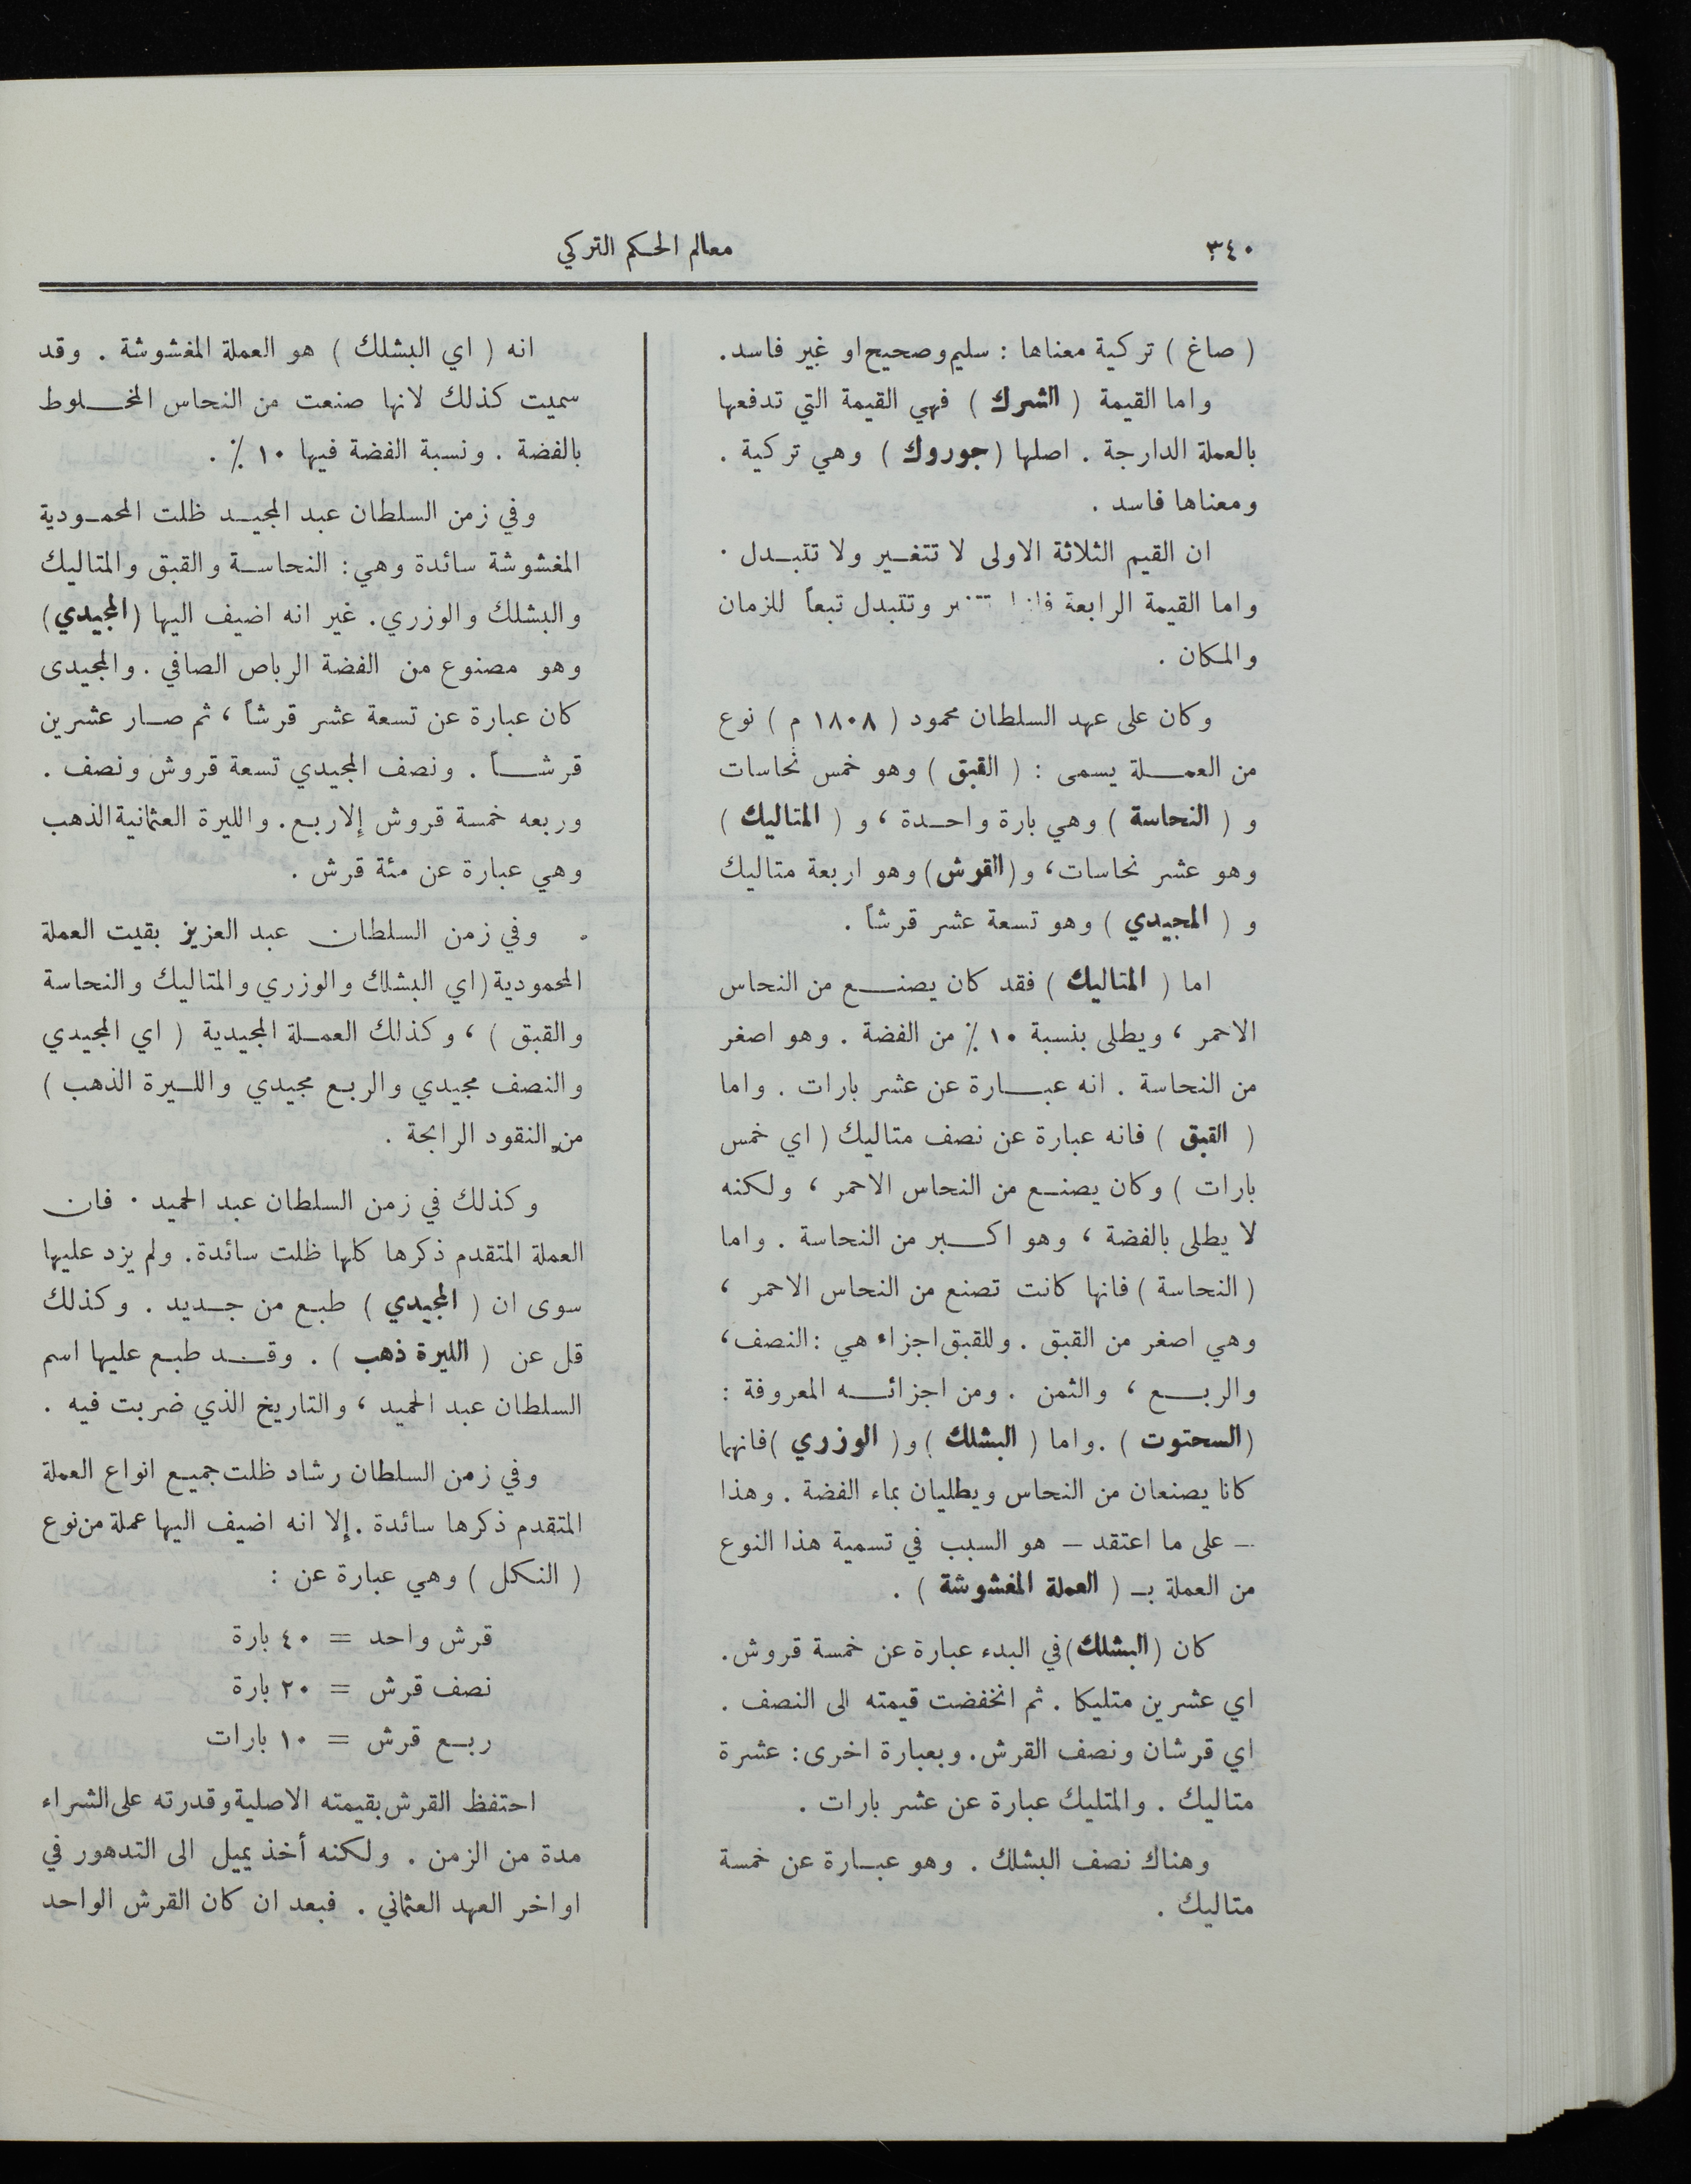 ٣٤٠
معالم الحكم التركي
( صاغ ) تركية معناها : سليم وصحيح او غير فاسد .
واما القيمة ( الشرك ) فهي القيمة التي تدفعها
بالعملة الدارجة . اصلها ( جوروك ) وهي تركية .
ومعناها فاسد .
ان القيم الثلاثة الاولى لا تتغير ولا تتبدل .
واما القيمة الرابعة وتتبدل تبعاً للزمان
والمكان .
وكان على عهد السلطان محمود ( ١٨٠٨ م ) نوع
من العملة يسمى : ( القبق ) وهو خمس نحاسات
و ( النحاسة ) وهي بارة واحدة ، و ( المتاليك )
وهو عشر نحاسات ، و ( القرش ) وهو اربعة متاليك
و ( المجيدي ) وهو تسعة عشر قرشاً .
اما ( المتاليك ) فقد كان يصنع من النحاس
الاحمر ، ويطلى بنسبة ١٠ ٪ من الفضة . وهو اصغر
من النحاسة . انه عبارة عن عشر بارات . واما
( القبق ) فانه عبارة عن نصف متاليك ( اي خمس
بارات ) وكان يصنع من النحاس الاحمر ، ولكنه
لا يطلى بالفضة ، وهو اكبر من النحاسة . واما
( النحاسة ) فانها كانت تصنع من النحاس الاحمر ،
وهي اصغر من القبق . وللقبق اجزاء هي : النصف ،
والربع ، والثمن . ومن اجزائه المعروفة :
( السحتوت ) . واما ( البشلك ) و ( الوزري ) فانهما
كانا يصنعان من النحاس ويطليان بماء الفضة . وهذا
– على ما اعتقد – هو السبب في تسمية هذا النوع
من العملة بـ ( العملة المغشوشة ) .
كان ( البشلك ) في البدء عبارة عن خمسة قروش .
اي عشرين متليكا . ثم انخفضت قيمته الى النصف .
اي قرشان ونصف القرش . وبعبارة اخرى : عشرة
متاليك . والمتليك عبارة عن عشر بارات .
وهناك نصف البشلك . وهو عبارة عن خمسة
متاليك .
انه ( اي البشلك ) هو العملة المغشوشة . وقد
سميت كذلك لانها صنعت من النحاس المخلوط
بالفضة . ونسبة الفضة فيها ١٠ ٪ .
وفي زمن السلطان عبد المجيد ظلت المحمودية
المغشوشة سائدة وهي : النحاسة والقبق والمتاليك
والبشلك والوزري . غير انه اضيف اليها ( المجيدي )
وهو مصنوع من الفضة الرباص الصافي . والمجيدى
كان عبارة عن تسعة عشر قرشاً ، ثم صار عشرين
قرشاً . ونصف المجيدي تسعة قروش ونصف .
وربعه خمسة قروش إلا ربع . والليرة العثمانية الذهب
وهي عبارة عن مئة قرش .
وفي زمن السلطان عبد العزيز بقيت العملة
المحمودية ( اي البشلك والوزري والمتاليك والنحاسة
والقبق ) ، وكذلك العملة المجيدية ( اي المجيدي
والنصف مجيدي والربع مجيدي والليرة الذهب )
من النقود الرابحة .
وكذلك في زمن السلطان عبد الحميد . فان
العملة المتقدم ذكرها كلها ظلت سائدة . ولم يزد عليها
سوى ان ( المجيدي ) طبع من جديد . وكذلك
قل عن ( الليرة ذهب ) . وقد طبع عليها اسم
السلطان عبد الحميد ، والتاريخ الذي ضربت فيه .
وفي زمن السلطان رشاد ظلت جميع انواع العملة
المتقدم ذكرها سائدة . إلا انه اضيف اليها عملة من نوع
( النكل ) وهي عبارة عن :
قرش واحد = ٤٠ بارة
نصف قرش = ٢٠ بارة
ربع قرش = ١٠ بارات
احتفظ القرش بقيمته الاصلية وقدرته على الشراء
مدة من الزمن . ولكنه أخذ يميل الى التدهور في
اواخر العهد العثماني . فبعد ان كان القرش الواحد